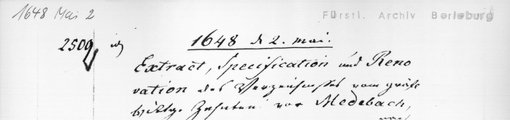 1648 Mai 2
Fürstl. Archiv Berleburg
1648 d 2. mai.
2509
Extract, Specification und Reno
vation des Verzeichnisses vom
Zehnten vor Medebach,